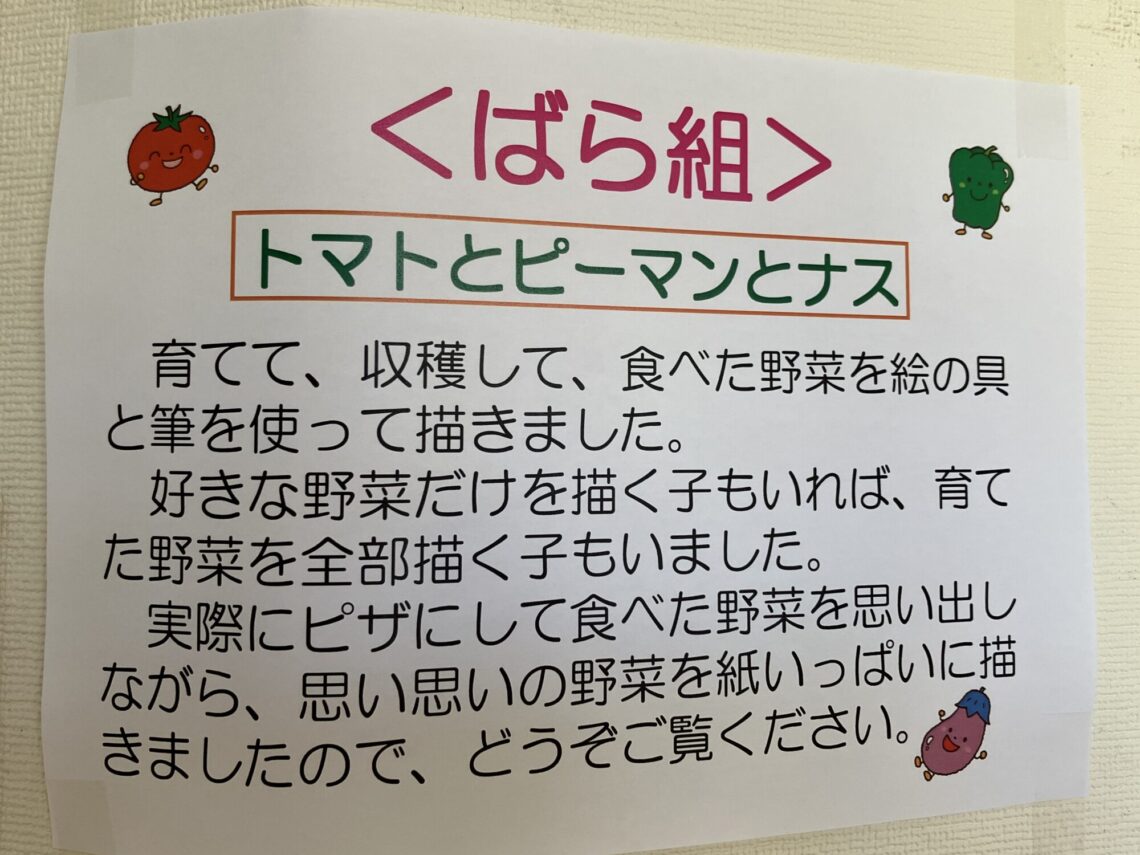 <ばら組>
トマトとピーマンとナス
育てて、収穫して、食べた野菜を絵の具
と筆を使って描きました。
好きな野菜だけを描く子もいれば、育て
た野菜を全部描く子もいました。
実際にピザにして食べた野菜を思い出し
ながら、思い思いの野菜を紙いっぱいに描
きましたので、どうぞご覧ください。